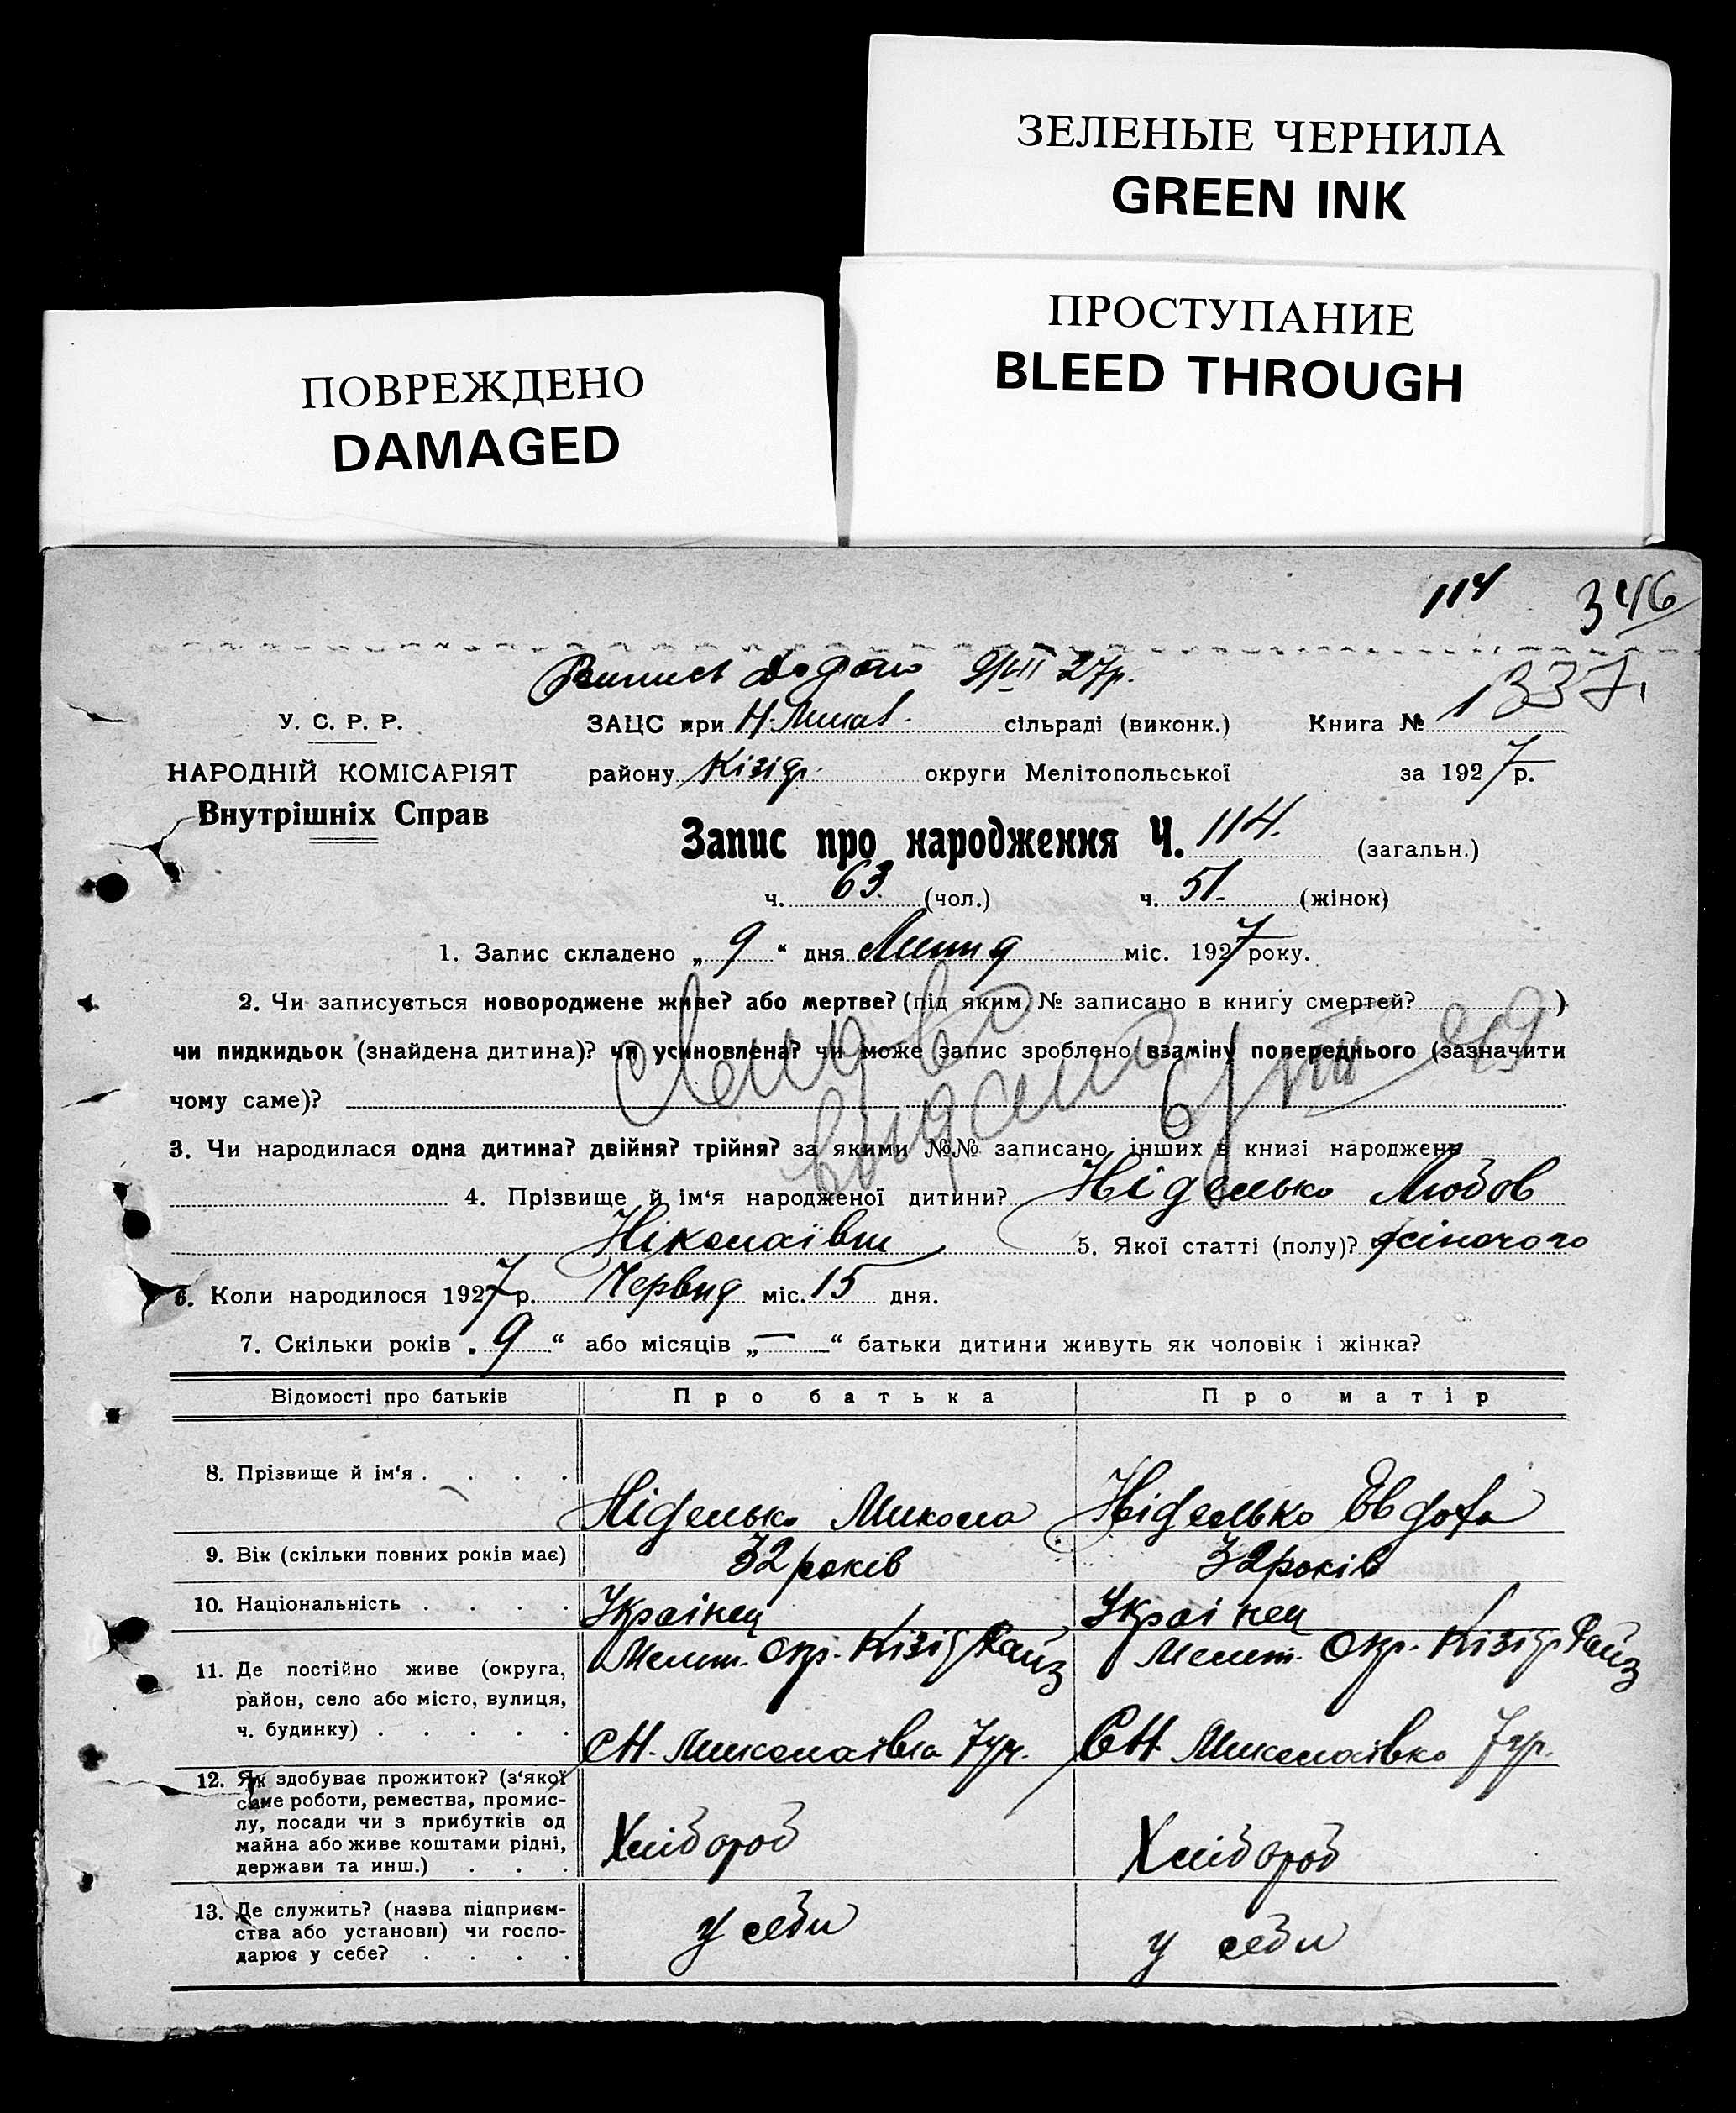 ЗЕЛЕНЫЕ ЧЕРНИЛА
GREEN INK
ПРОСТУПАНИЕ
BLEED THROUGH
ПОВРЕЖДЕНО
DAMAGED
114 346
Випись 9/VII 27р.
337
У. С. Р. Р.
НАРОДНІЙ КОМІСАРІЯТ
Внутрішніх Справ
ЗАЦС при Н. Микол. сільраді (виконк.) Книга № 1
району Кізіяр. округи Мелітопольської за 1927 р.
Запис про народження Ч. 114. (загальн.)
ч. 63. (чол.) ч. 51. (жінок)
1. Запис складено „ 9 “ дня Липня міс. 1927 року.
2. Чи записується новороджене живе? або мертве? (під яким № записано в книгу смертей? )
чи пидкидьок (знайдена дитина)? чи усиновлена? чи може запис зроблено взаміну попереднього (зазначити
чому саме)?
видано 6/VIII 29
3. Чи народилася одна дитина? двійня? трійня? за якими №№ записано інших в книзі народжень
4. Прізвище й ім‘я народженої дитини? Ніделько Любов
Ніколаївни 5. Якої статті (полу)? жіночого
6. Коли народилося 1927 р. Червня міс. 15 дня.
7. Скільки років „ 9 “ або місяців „ — “ батьки дитини живуть як чоловік і жінка?
Відомості про батьків Про батька Про матір
8. Прізвище й ім‘я . . . . Ніделько Микола Ніделько Евдоха
9. Вік (скільки повних років має) 32 років 32 років
10. Національність . . . . Українец Українец
11. Де постійно живе (округа,
район, село або місто, вулиця,
ч. будинку) . . . . .
Мелит. Окр. Кізіяр Район Мелит. Окр. Кізіяр Район
с Н. Миколаївка С Н. Миколаївка
12. Як здобуває прожиток? (з‘якої
саме роботи, ремества, промис-
лу, посади чи з прибутків од
майна або живе коштами рідні,
держави та инш.) . . .
Хлібороб Хлібороб
13. Де служить? (назва підприєм-
ства або установи) чи госпо-
дарює у себе? . . . .
у себи у себи